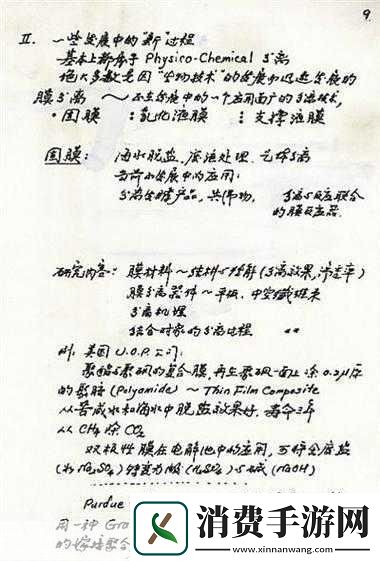 9.
II. 一些发展中的"新"过程
基本上都属于 Physico-Chemical 分离
绝大多数是因"生物技术"的发展而迅速发展的
膜分离 ～ 正在发展中的一个应用面广的分离技术,
·固膜 :乳化液膜 :支撑液膜
固膜: 海水脱盐、废液处理、气体分离
当前正发展中的应用:
分离发酵产品,共沸物, 分离与反应联合
的膜反应器.
研究内容: 膜材料～结构与性能(分离效果,渗透率)
膜分离器件～平板、中空纤维束
分离机理
结合对象的分离过程
例. 美国 U.O.P. 公司:
聚酯与聚砜的复合膜,再在聚砜一面上涂0.2μ厚
的聚胺 (Polyamide) ～ Thin Film Composite
从苦咸水和海水中脱盐效果好,寿命三年
从 CH₄ 除 CO₂
双极性膜在电解池中的应用,可将金属盐
(如 Na₂SO₄) 转变为酸 (H₂SO₄) 与碱 (NaOH)
Purdue
用一种 Gra
的嫁接聚合
消费手游网
www.xinnanwang.com